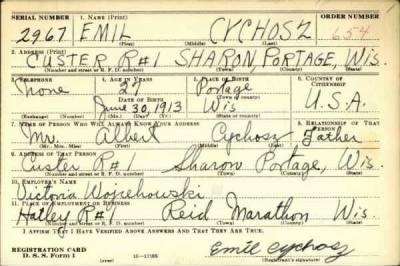 SERIAL NUMBER 1. NAME (Print) ORDER NUMBER
2967 EMIL CYCHOSZ 654
(First) (Middle) (Last)
2. ADDRESS (Print)
CUSTER R#1 SHARON, PORTAGE, Wis.
(Number and street or R. F. D. number) (Town) (County) (State)
3. TELEPHONE 4. AGE IN YEARS 5. PLACE OF BIRTH 6. COUNTRY OF CITIZENSHIP
None 27 Portage
DATE OF BIRTH (Town or county)
June 30, 1913 Wis U.S.A.
(Exchange) (Number) (Mo.) (Day) (Yr.) (State or country)
7. NAME OF PERSON WHO WILL ALWAYS KNOW YOUR ADDRESS 8. RELATIONSHIP OF THAT PERSON
Mr. Albert Cychosz Father
(Mr., Mrs., Miss) (First) (Middle) (Last)
9. ADDRESS OF THAT PERSON
Custer R#1 Sharon Portage, Wis.
(Number and street or R. F. D. number) (Town) (County) (State)
10. EMPLOYER'S NAME
Victoria Wojcehowski
11. PLACE OF EMPLOYMENT OR BUSINESS
Hatley R#1 Reid Marathon Wis.
(Number and street or R. F. D. number) (Town) (County) (State)
I AFFIRM THAT I HAVE VERIFIED ABOVE ANSWERS AND THAT THEY ARE TRUE.
REGISTRATION CARD
D. S. S. Form 1 (over) 16—17105 Emil Cychosz
(Registrant's signature)